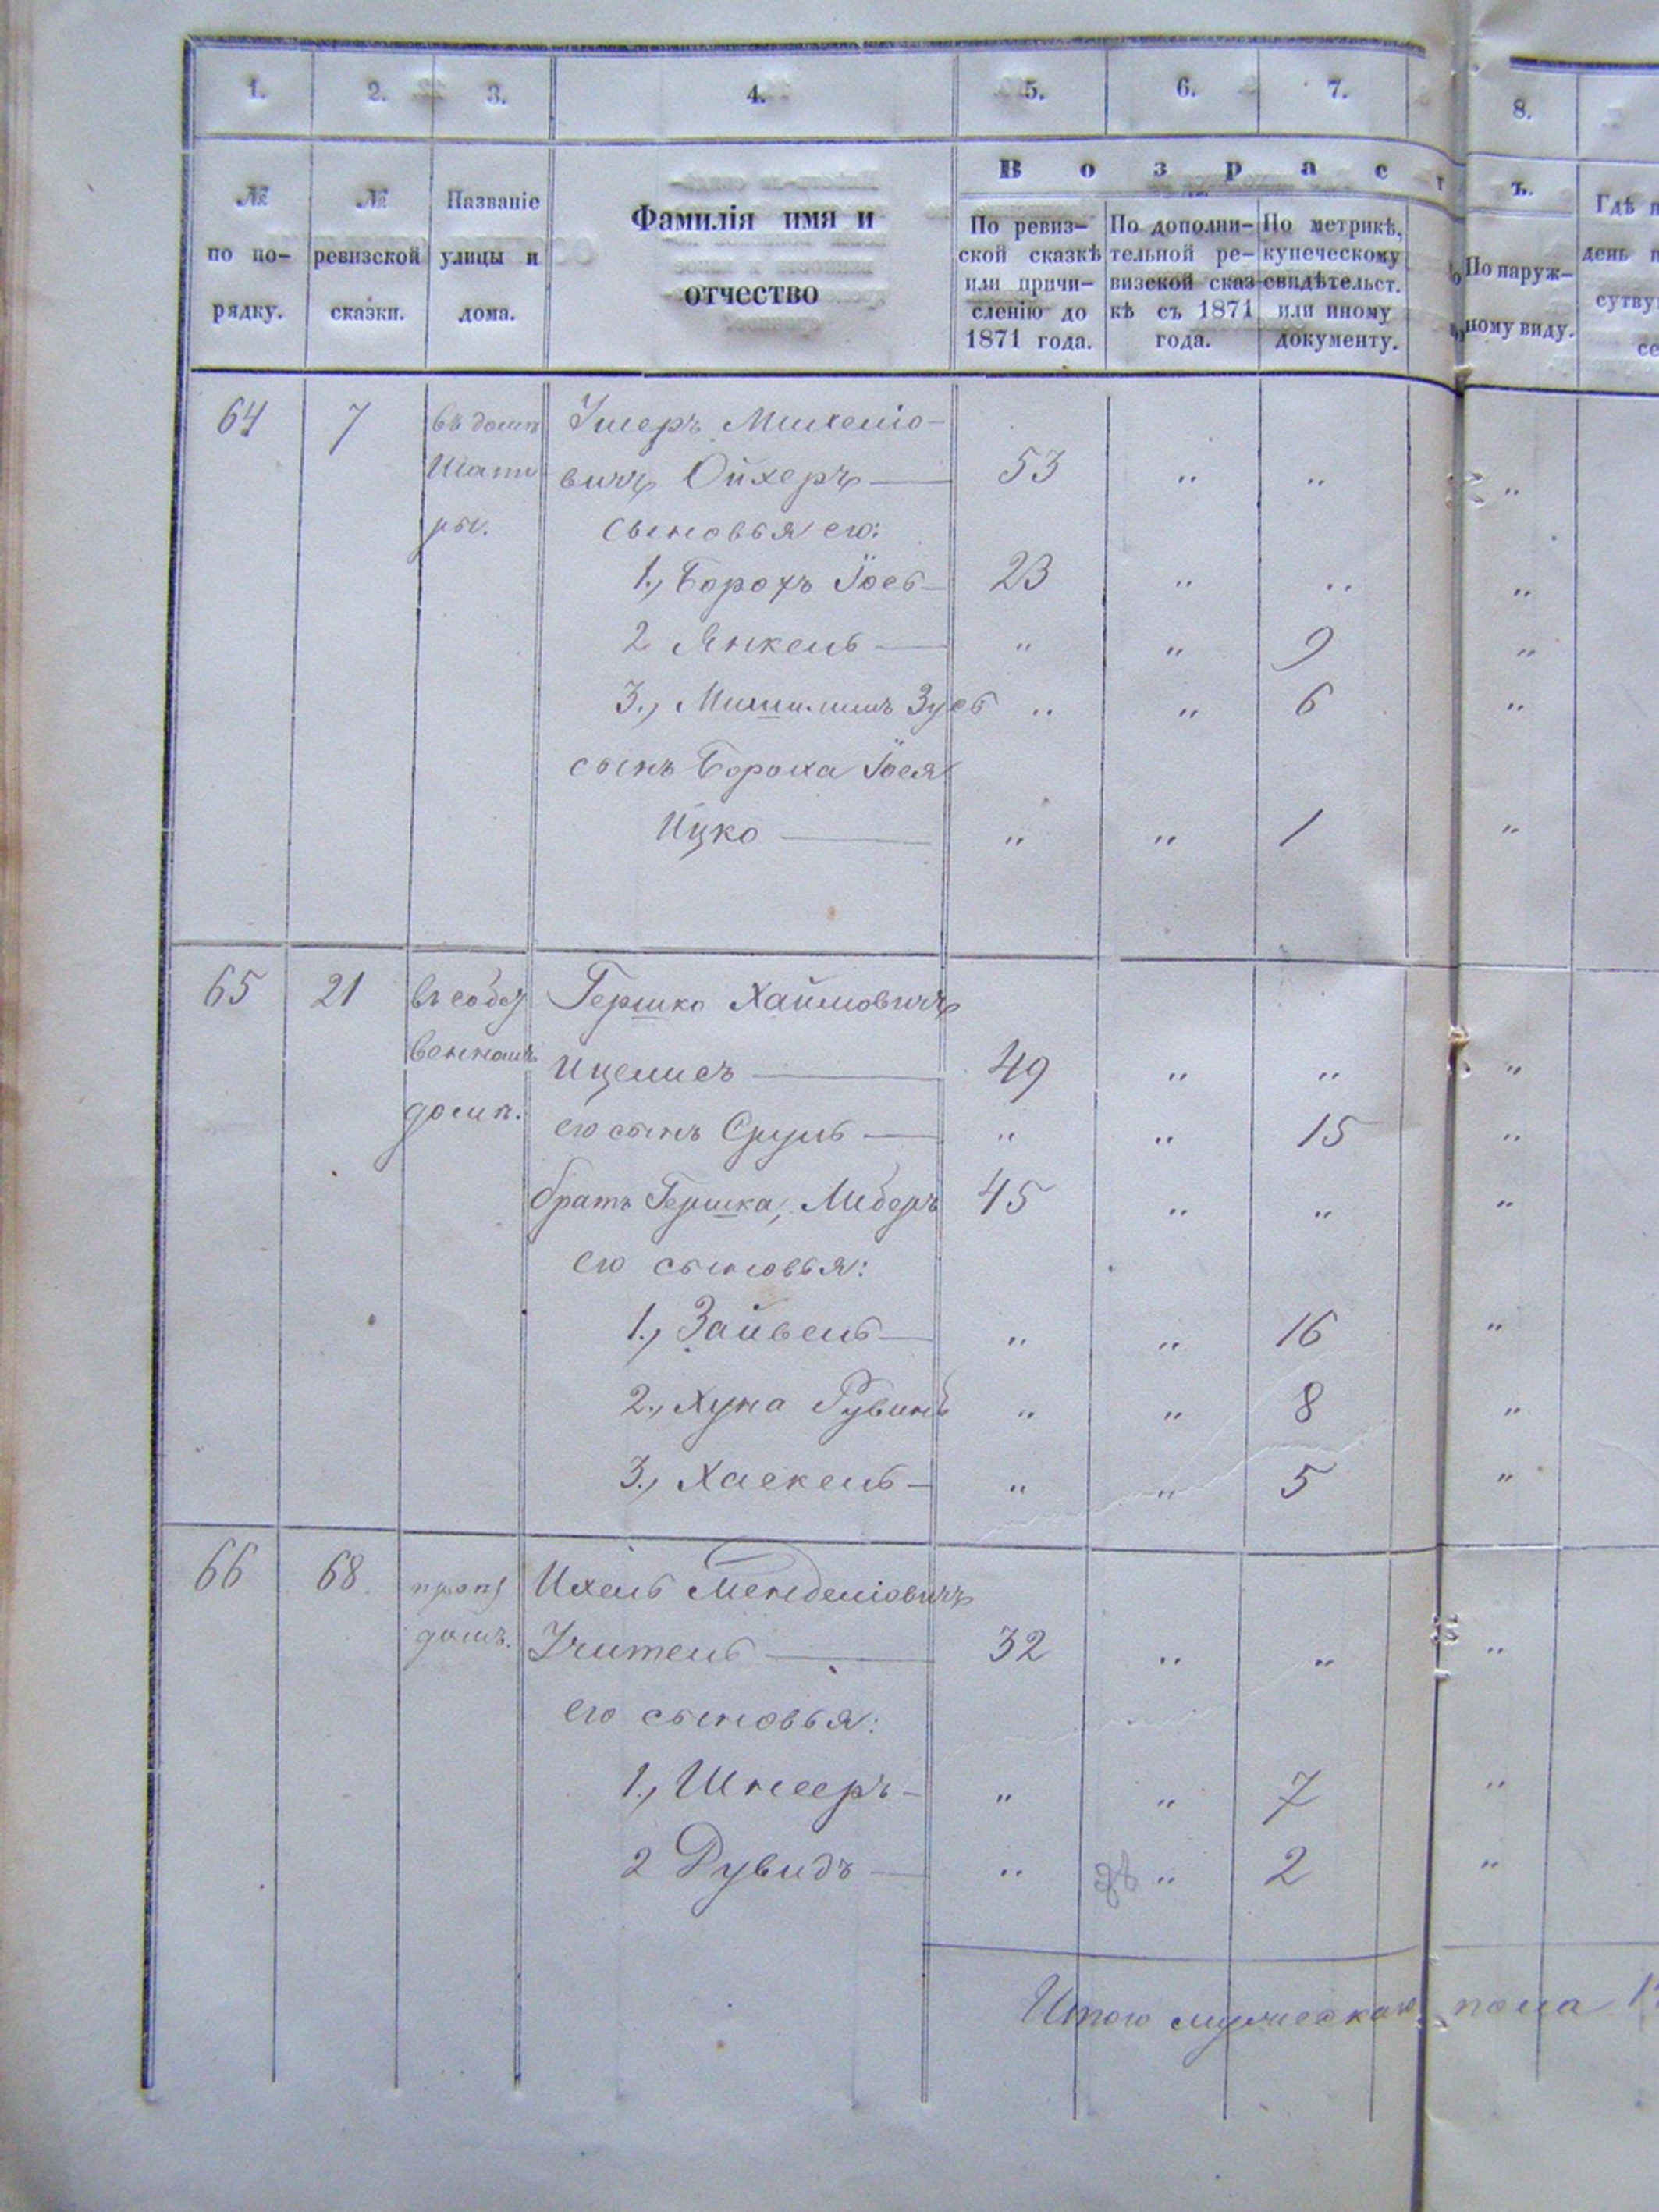 1. 2. 3. 4. 5. 6. 7. 8.
В о з р а с т ъ.
№ по по-рядку.
№ ревизской сказки.
Названіе улицы и дома.
Фамилія имя и отчество
По ревиз-
ской сказкѣ
или причи-
сленію до
1871 года.
По дополни-
тельной ре-
визской сказ-
кѣ съ 1871
года.
По метрикѣ,
купеческому
свидѣтельст.
или иному
документу.
По наруж-
ному виду.
Гдѣ
день
сутву
64 7 въ домѣ Умеръ Михеліо-
Шати- вичъ Ойхеръ — 53 " " "
ры. сыновья его:
1., Борохъ Іось — 23 " " "
2 Янкель — " " 9 "
3., Зусь " " 6 "
сынъ Бороха Іося
Ицко — " " 1 "
65 21 въ собст Гершко Хаимовичъ
венномъ Ицелисъ — 49 " " "
домѣ. его сынъ Сруль — " " 15 "
братъ Гершка, Либеръ 45 " " "
его сыновья:
1., Зайвель — " " 16 "
2., Хуна Рувинъ " " 8 "
3., Хаскель — " " 5 "
66 68 Ихель Менделіовичъ
домъ. Учитель — 32 " " "
его сыновья:
1., Шнееръ — " " 7 "
2 Дувидъ — " " 2 "
Итого мужескаго пола